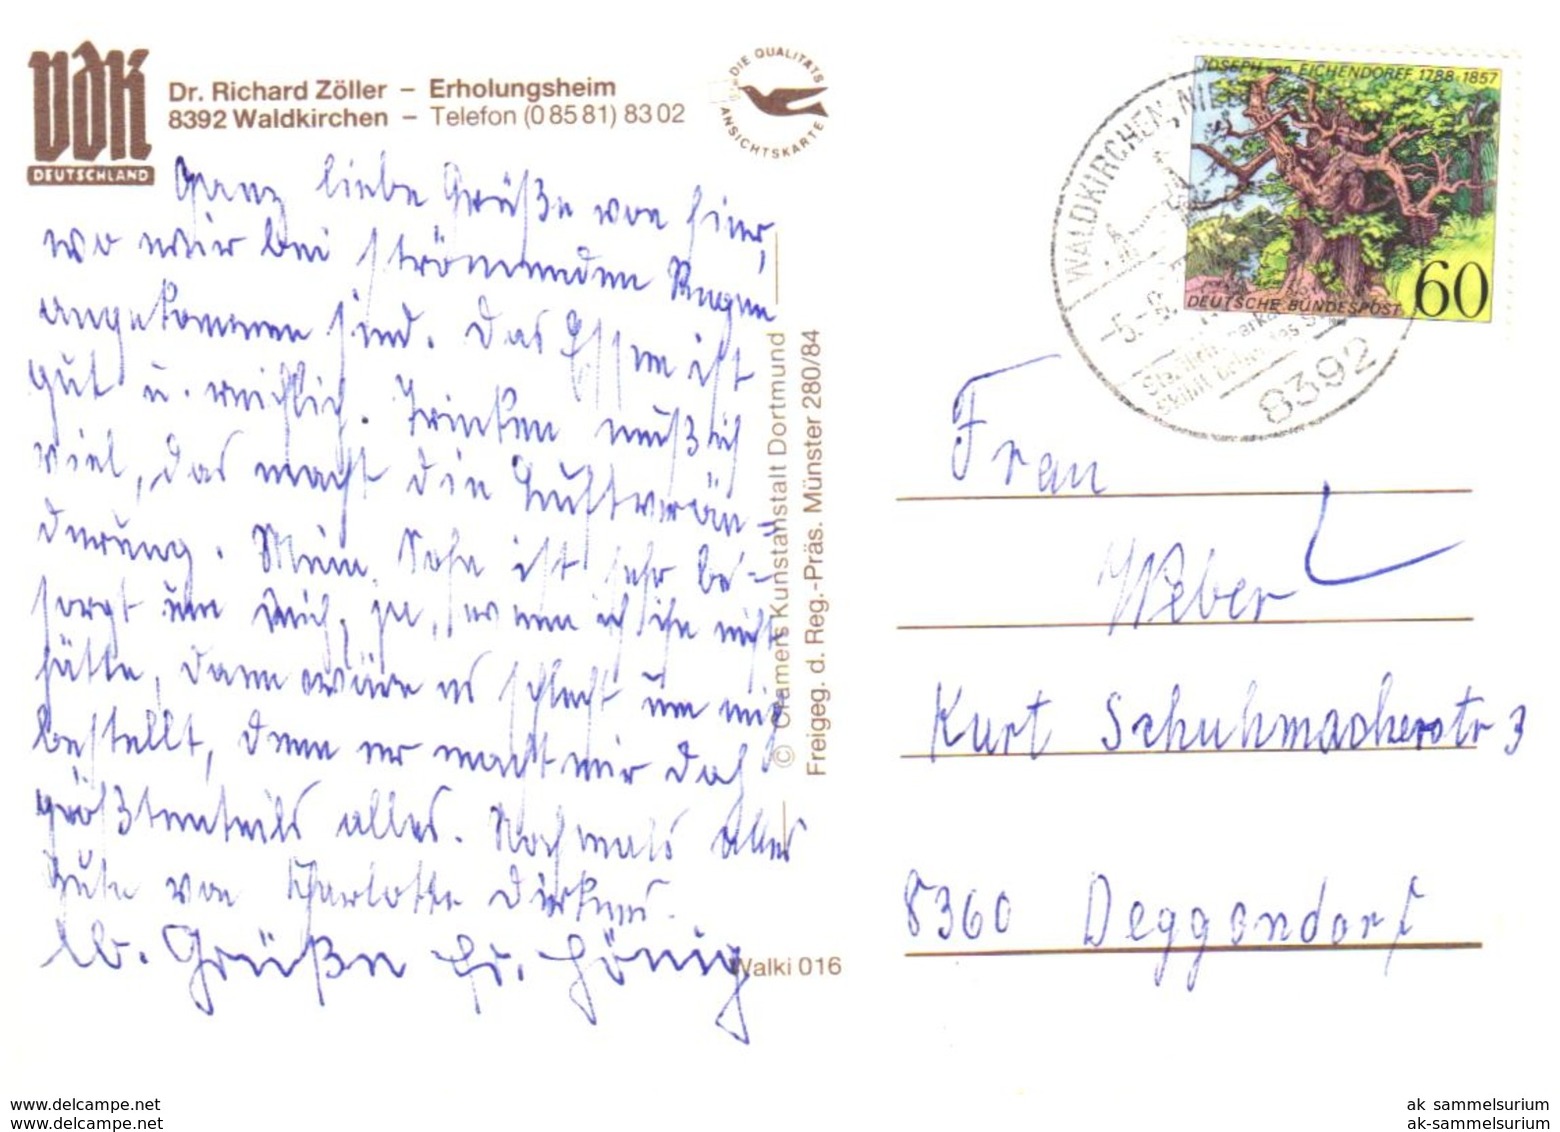 VdK
DEUTSCHLAND
Dr. Richard Zöller – Erholungsheim
8392 Waldkirchen – Telefon (0 85 81) 83 02
DIE QUALITÄTS
ANSICHTSKARTE
Ganz liebe Grüße von hier,
wo wir bei strömenden Regen
angekommen sind. Das Essen ist
gut u. reichlich. Trinken muß ich
viel, das macht die Luftverän=
derung. Mein Sohn ist sehr be=
sorgt um mich, ja, wenn ich ihn nicht
hätte, dann wäre es schlecht um mich
bestellt, denn er macht mir doch
größtenteils alles. Nochmals alles
Gute von Charlotte Dirkens.
lb. Grüße Fr. Hönig
Walki 016
© Cramers Kunstanstalt Dortmund
Freigeg. d. Reg.-Präs. Münster 280/84
JOSEPH von EICHENDORFF 1788-1857
DEUTSCHE BUNDESPOST
60
WALDKIRCHEN, NI
-5.-9.
8392
Frau
Weber
Kurt Schuhmacherstr 3
8360 Deggendorf
www.delcampe.net
www.delcampe.net
ak_sammelsurium
ak-sammelsurium